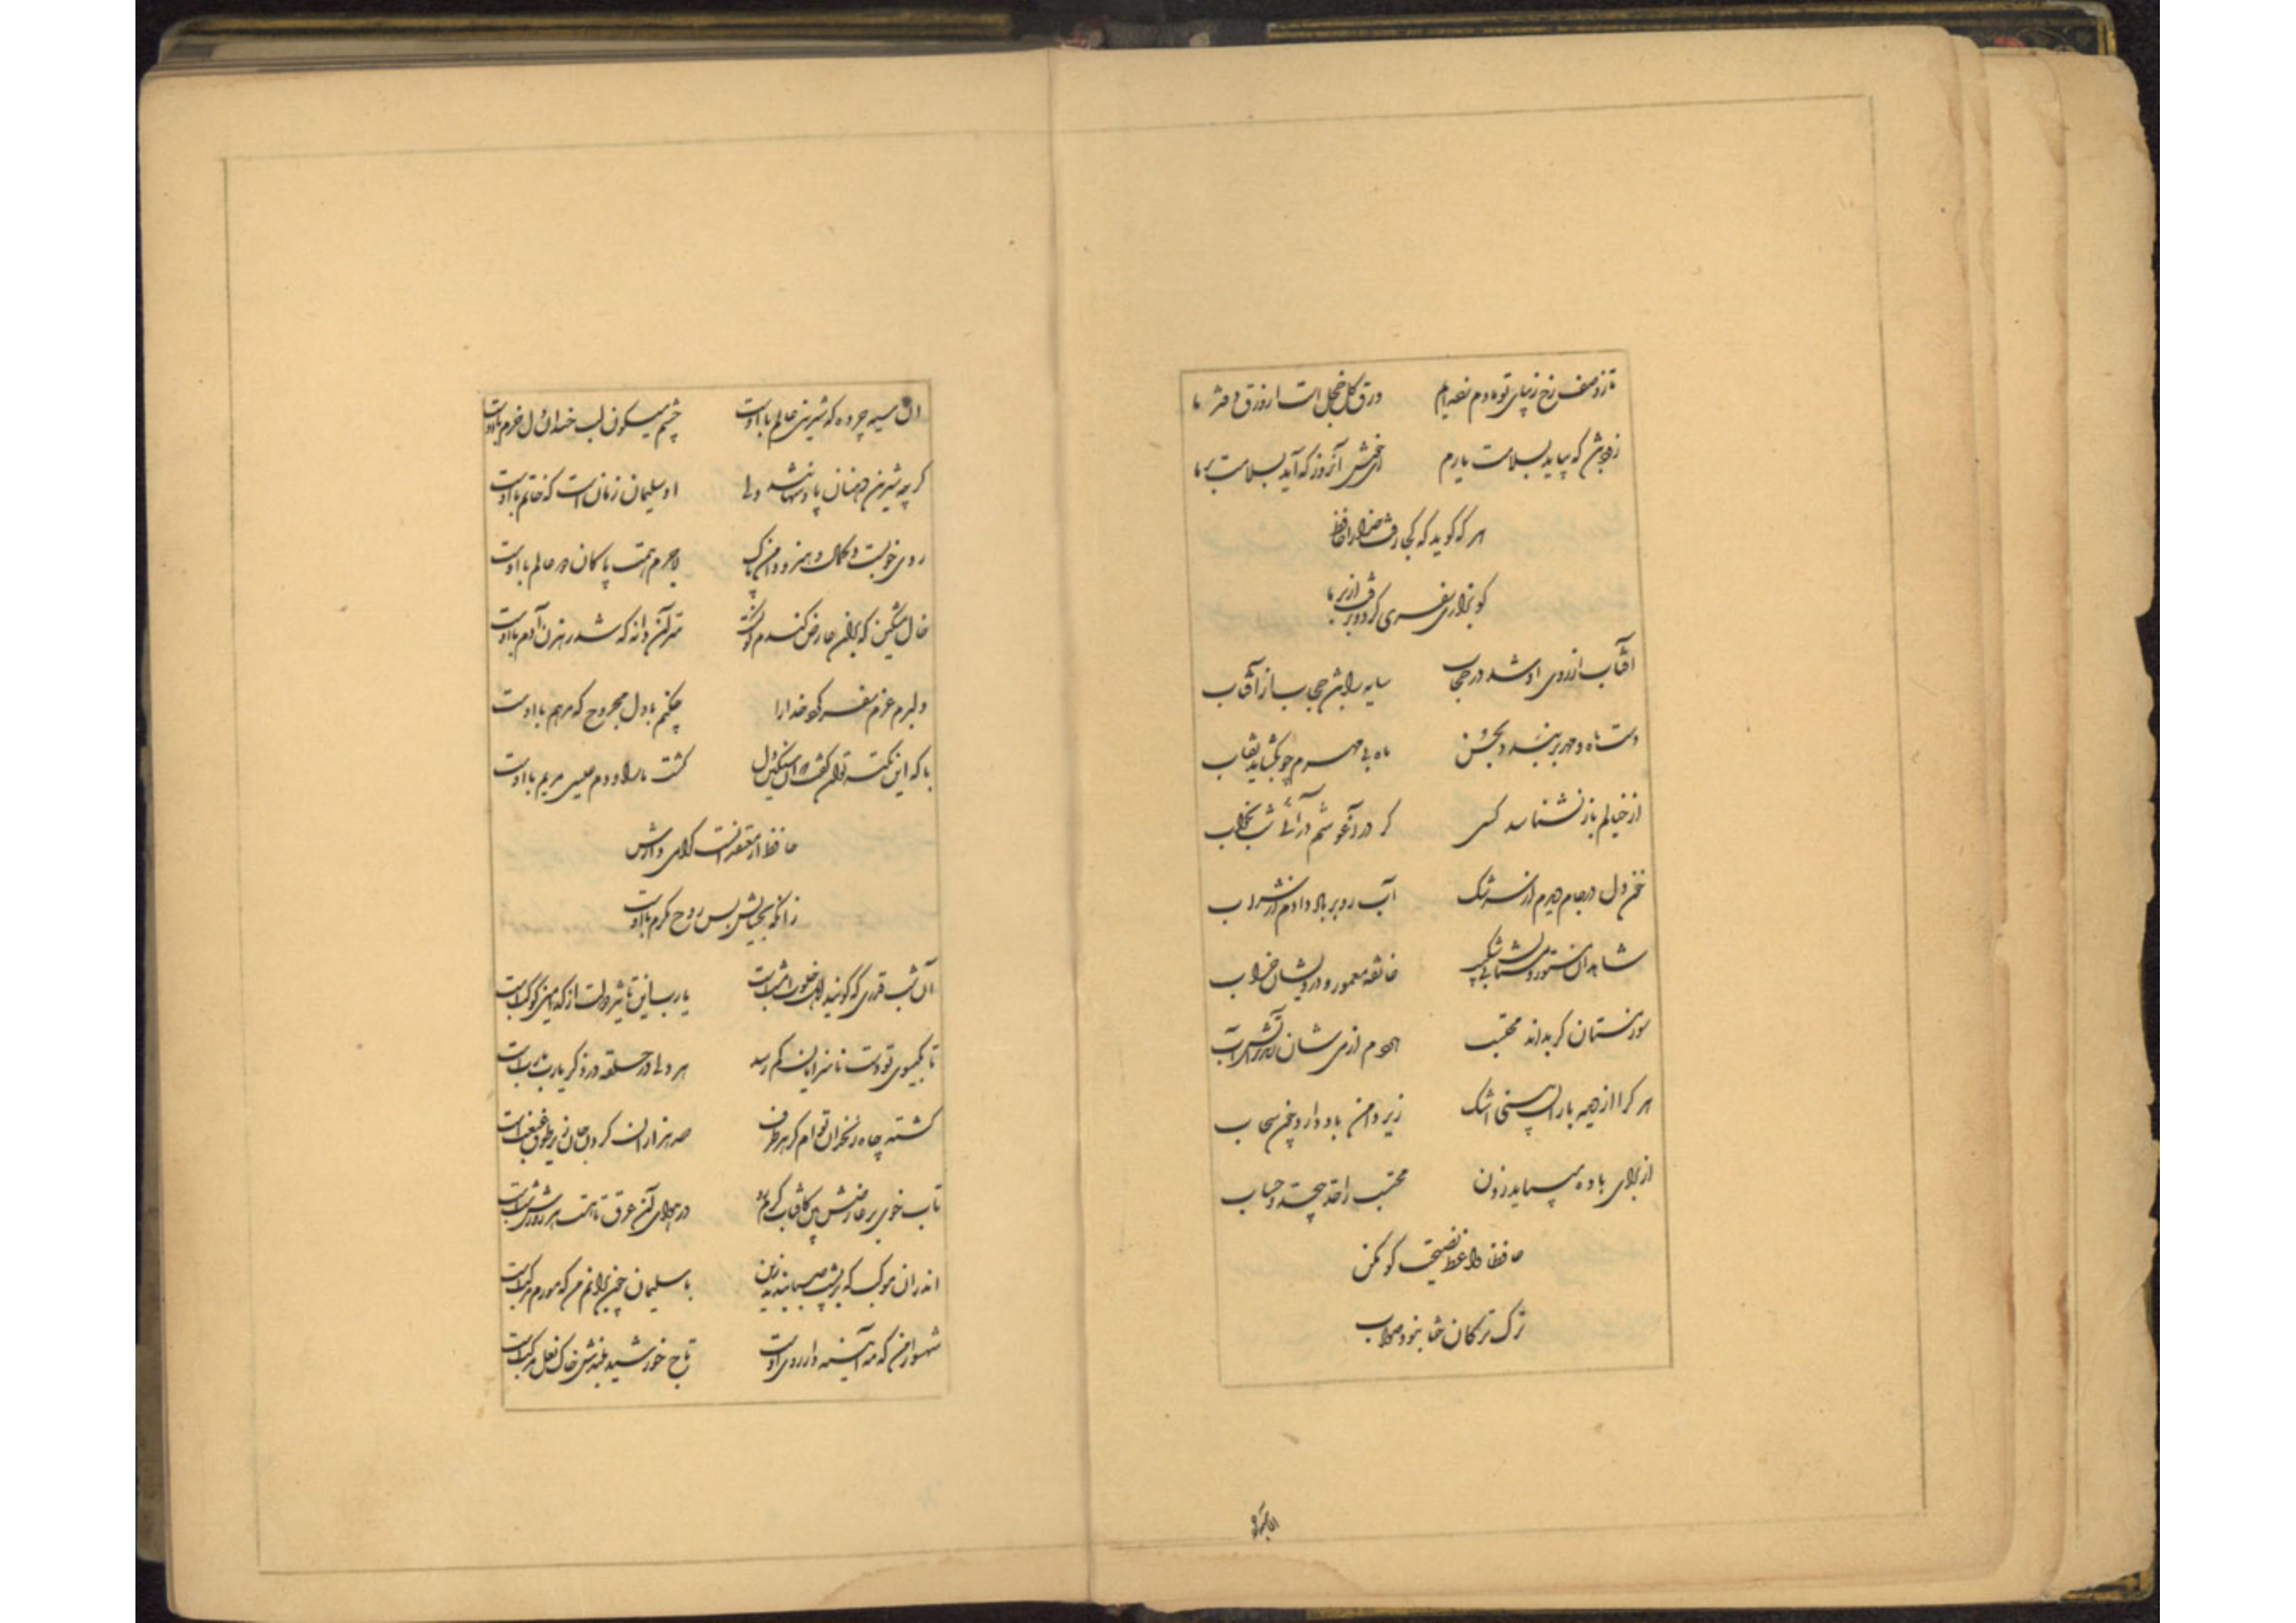 تا ز وصف رخ زیبای تو ما دم زده‌ایم ورق گل خجل است از ورق دفتر ما
زود باش که بیاید بسلامت یارم ای خوش آنروز که آید بسلامت بر ما
هر که گوید که کجا رفت خدا را حافظ
کو بزاری سفری کرد و برفت از بر ما
آفتاب از روی او شد در حجاب سایه را باشد حجاب از آفتاب
دست ماه و مهر بر بندد بحسن ماه بی مهرم چو بگشاید نقاب
از خیالم باز نشناسد کسی گر در آغوشم در آئی شب بخواب
خون دل در جام دیدم از سرشک آب رو بر باد دادم از شراب
شاهدان مستور و مستان بی شکیب خانقه معمور و درویشان خراب
سوز مستان گر بداند محتسب هر دم از می شان زند بر آتش آب
هر کرا از دیده باران نیستی اشک زیر دامن باد دارد چون سحاب
از برای باده میباید زدن محتسب را حد بیحد و حساب
حافظا واعظ نصیحت گو مکن
ترک ترکان خطا نبود صواب
آن سیه چرده که شیرینی عالم با اوست چشم میگون لب خندان دل خرم با اوست
گر چه شیرین دهنان پادشهانند ولی او سلیمان زمان است که خاتم با اوست
روی خوبست و کمال و هنر و دامن پاک لاجرم همت پاکان دو عالم با اوست
خال مشکین که بران عارض گندم گونست سر آن دانه که شد رهزن آدم با اوست
دلبرم عزم سفر کرد خدا را چکنم با دل مجروح که مرهم با اوست
با که این نکته توان گفت که آن سنگین دل کشت ما را و دم عیسی مریم با اوست
حافظ از معتقدانست گرامی دارش
زانکه بخشایش بس روح مکرم با اوست
آن شب قدری که گویند اهل خلوت امشبست یارب این تاثیر دولت از کدامین کوکبست
تا بگیسوی تو دست ناسزایان کم رسد هر دلی در حلقه در ذکر یارب یاربست
کشته چاه زنخدان توام کز هر طرف صد هزارانش گردن جان زیر طوق غبغبست
تاب خوی بر عارضش بین کافتاب گرم رو در هوای آن عرق تا هست هر روزش تبست
اندران موکب که بر پشت صبا بندند زین با سلیمان چون برانم من که مورم مرکبست
شهسوار من که مه آئینه دار روی اوست تاج خورشید بلندش خاک نعل مرکبست